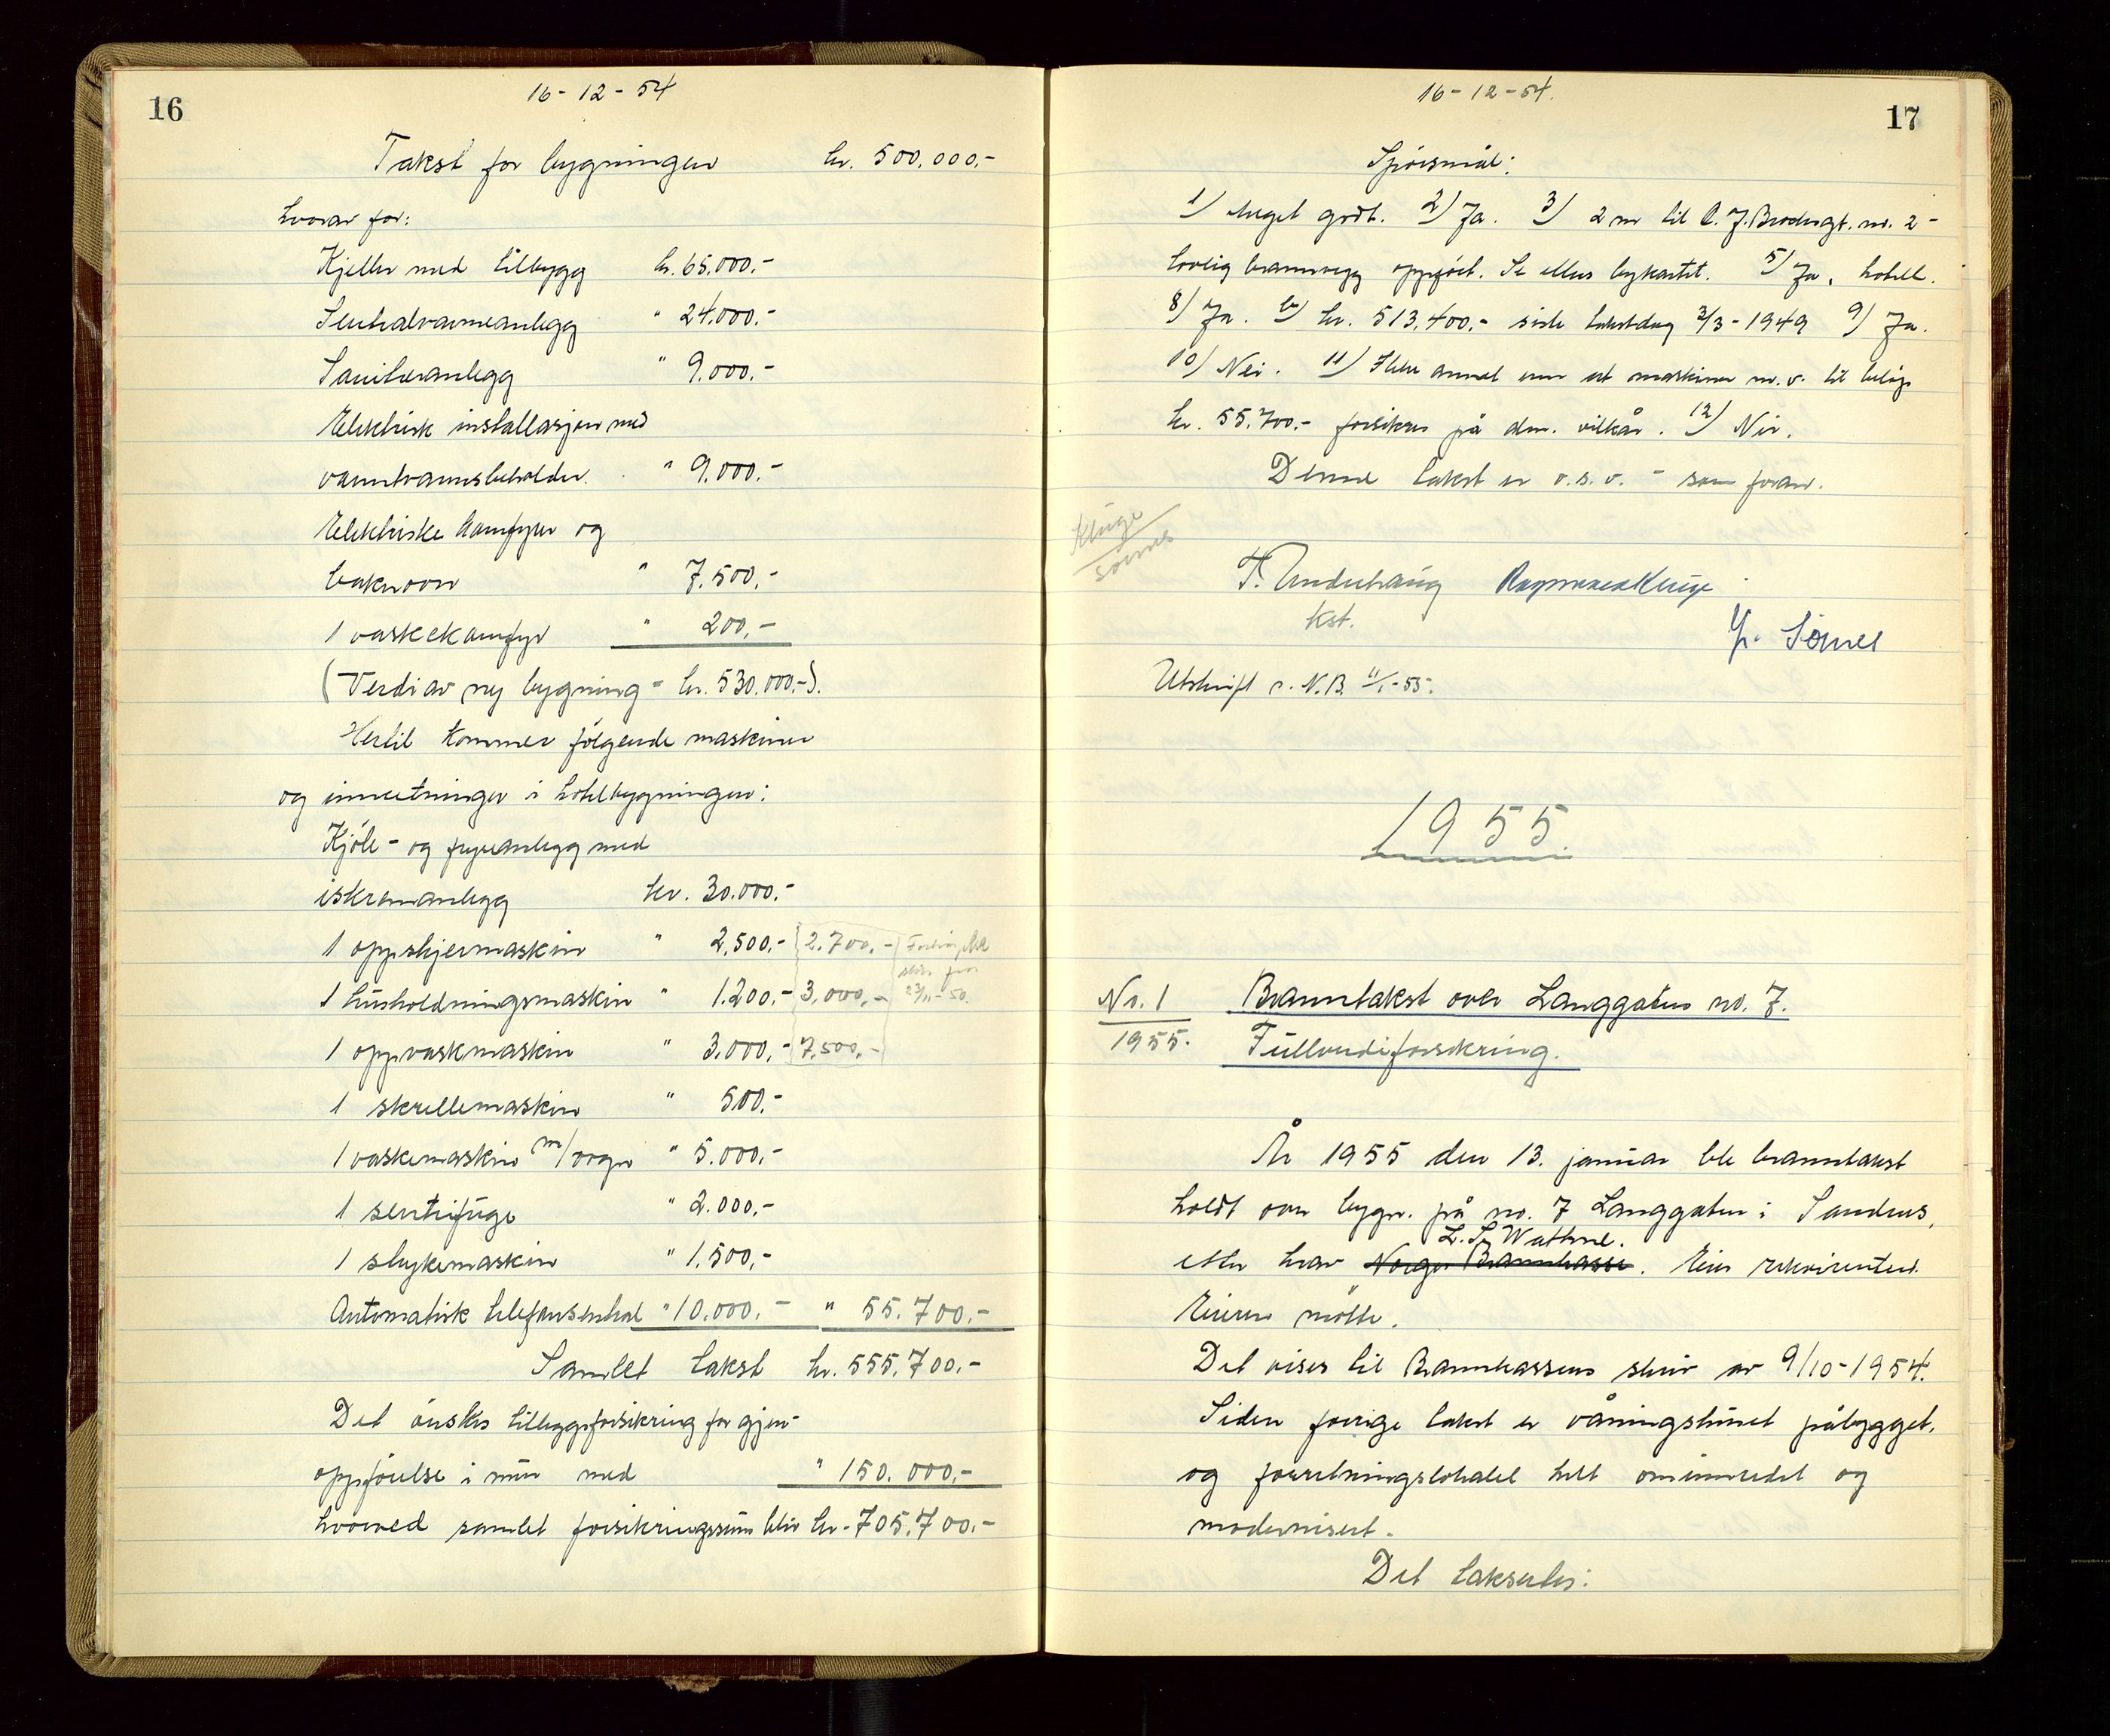 16
16-12-54
Takst for bygningen kr. 500.000.-
hvorav for:
Kjeller med tilbygg kr. 65.000.-
Sentralvarmeanlegg " 24.000.-
Sanitæranlegg " 9.000.-
Elektrisk installasjon med
varmtvannsbeholder. " 9.000.-
Elektriske komfyrer og
bakerovn " 7.500.-
1 vaskekomfyr " 200.-
(Verdi av ny bygning = kr. 530.000.-).
Hertil kommer følgende maskiner
og innretninger i hotelbygningen:
Kjøle- og fryseanlegg med
iskremanlegg kr. 30.000.-
1 oppskjermaskin " 2.500.- 2.700.-
1 husholdningsmaskin " 1.200.- 3.000.- 23/11-50.
1 oppvaskmaskin " 3.000.- 7.500.-
1 skrellemaskin " 500.-
1 vaskemaskin m/ovn " 5.000.-
1 sentrifuge " 2.000.-
1 strykemaskin " 1.500.-
Automatisk telefonsentral " 10.000.- " 55.700.-
Samlet takst kr. 555.700.-
Det ønskes tilleggsforsikring for gjen-
oppførelse i mur med " 150.000.-
hvorved samlet forsikringssum blir kr. 705.700.-
16-12-54.
17
Spørsmål:
1) Meget godt. 2) Ja. 3) 2 m til C. J. Brodersgt. no. 2 -
lovlig brannvegg oppført. Se ellers bykartet. 5) Ja, hotell.
8) Ja. 6) kr. 513.400.- siste takstdag 3/3-1949 9) Ja.
10) Nei. 11) Ikke annet enn at maskiner m.v. til beløp
kr. 55.700.- forsikres på alm. vilkår. 12) Nei.
Denne takst er o.s.v. - som foran.
Kluge
Sømes
T. Underhaug Rasmus Kluge
kst.
Y. Sømes
Utskrift s. N.B. 11/1-55.
1955.
Nr. 1 Branntakst over Langgaten no. 7.
1955. Fullverdiforsikring.
År 1955 den 13. januar ble branntakst
holdt over bygn. på no. 7 Langgaten i Sandnes,
L. S. Wathne.
etter krav Norges Brannkasse. Eier rekvirenten.
Eieren møtte.
Det vises til Brannkassens skriv av 9/10-1954.
Siden forrige takst er våningshuset påbygget,
og forretningslokalet helt ominnredet og
modernisert.
Det takseres: